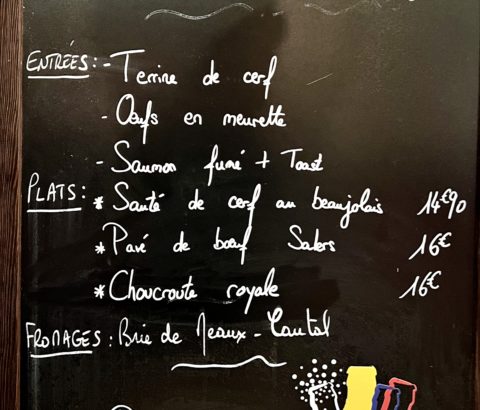 ENTRÉES : - Terrine de cerf
- Oeufs en meurette
- Saumon fumé + Toast
PLATS : * Sauté de cerf au beaujolais 14€90
* Pavé de boeuf Salers 16€
* Choucroute royale 16€
FROMAGES : Brie de Meaux - Cantal